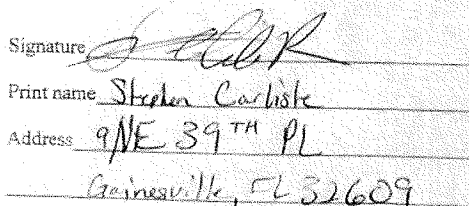 Signature
Print name Stephen Carlisle
Address 9 NE 39TH PL
Gainesville, FL 32609